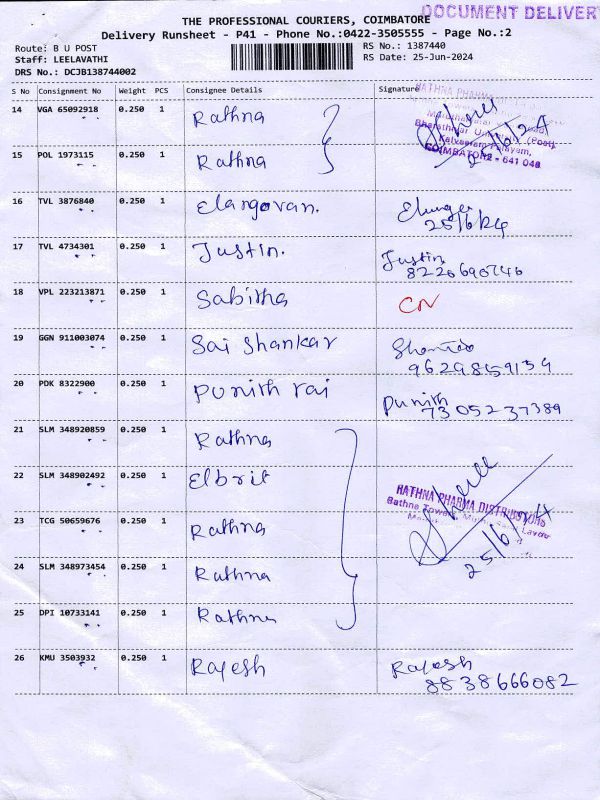 DOCUMENT DELIVER
THE PROFESSIONAL COURIERS, COIMBATORE
Delivery Runsheet - P41 - Phone No.:0422-3505555 - Page No.:2
Route: B U POST RS No.: 1387440
Staff: LEELAVATHI RS Date: 25-Jun-2024
DRS No.: DCJB138744002
S No Consignment No Weight PCS Consignee Details Signature
14 VGA 65092918 0.250 1 Rathna
25/6/24
Bharathiar
COIMBATORE - 641 046
15 POL 1973115 0.250 1 Rathna
16 TVL 3876840 0.250 1 Elangovan.
25/6/24
17 TVL 4734301 0.250 1 Justin. Justin
8220690746
18 VPL 223213871 0.250 1 Sabitha CN
19 GGN 911003074 0.250 1 Sai Shankar
9629859139
20 PDK 8322900 0.250 1 Punith raj Punith
7305237389
21 SLM 348920859 0.250 1 Rathna
22 SLM 348902492 0.250 1 Elbrit
RATHNA PHARMA DISTRIBUTORS
23 TCG 50659676 0.250 1 Rathna
25/6/24
24 SLM 348973454 0.250 1 Rathna
25 DPI 10733141 0.250 1 Rathna
26 KMU 3503932 0.250 1 Rajesh Rajesh
8838666082